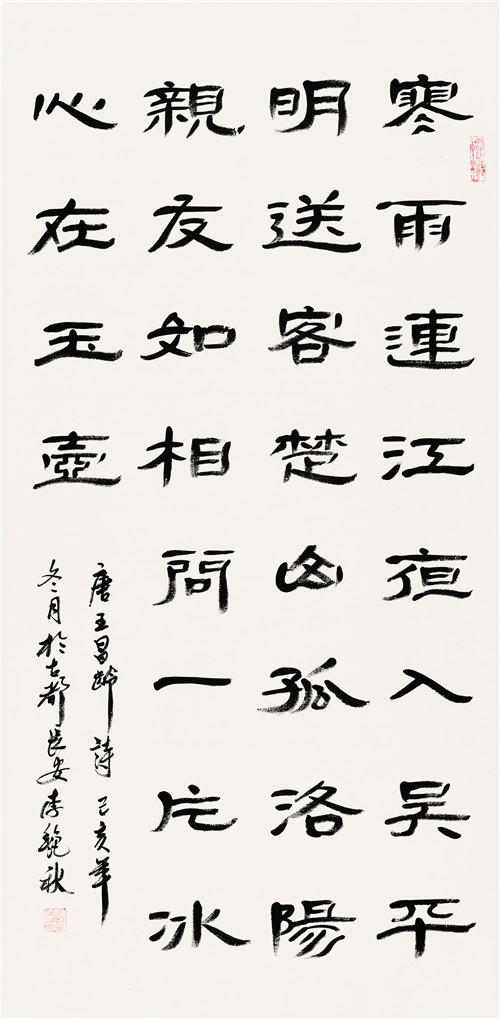 寒雨連江夜入吴平
明送客楚山孤洛陽
親友如相問一片冰
心在玉壺
唐王昌齡詩 己亥年
冬月於古都長安李魏秋